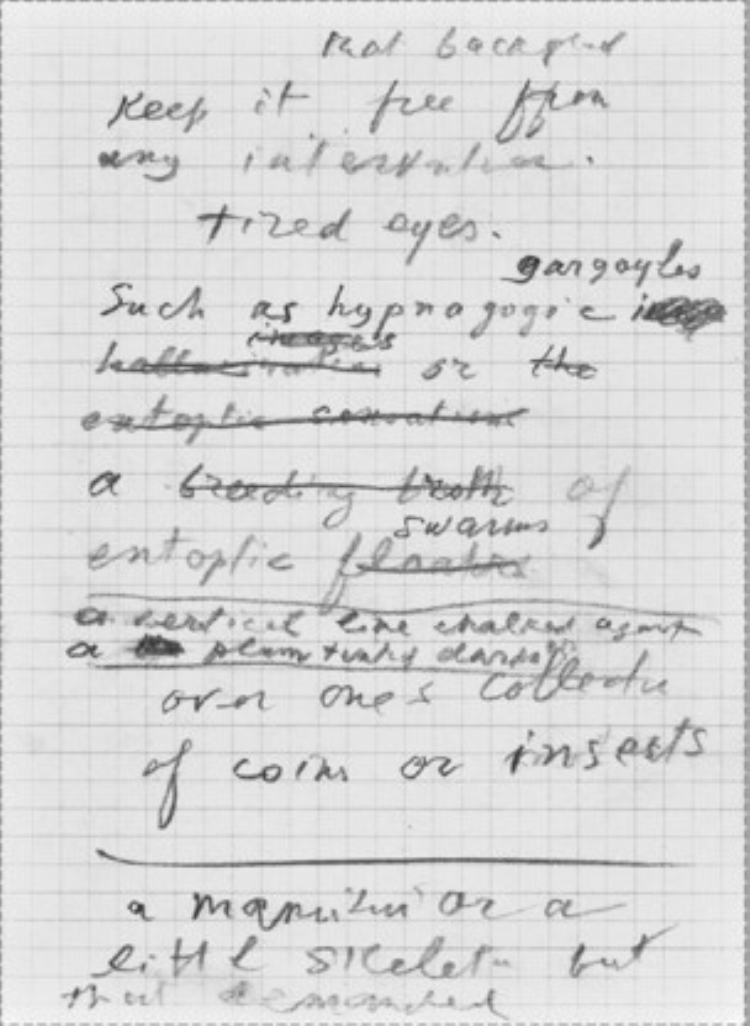 that background
Keep it free from
any intervention.
tired eyes.
gargoyles
Such as hypnagogic
images
hallucination or the
entoptic sensations
a breeding broth of
swarms
entoptic floaters
a vertical line chalked against
a plum tinky darkness
over one's collection
of coins or insects
a manikin or a
little skeleton but
that demanded